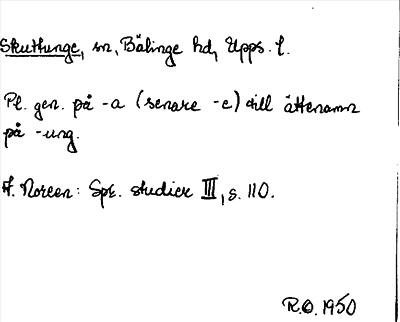 Skuttunge, sn, Bälinge hd, Upps. l.
Pl. gen. på -a (senare -e) till ättenamn
på -ung.
A. Noreen: Spr. studier III, s. 110.
R.O. 1950